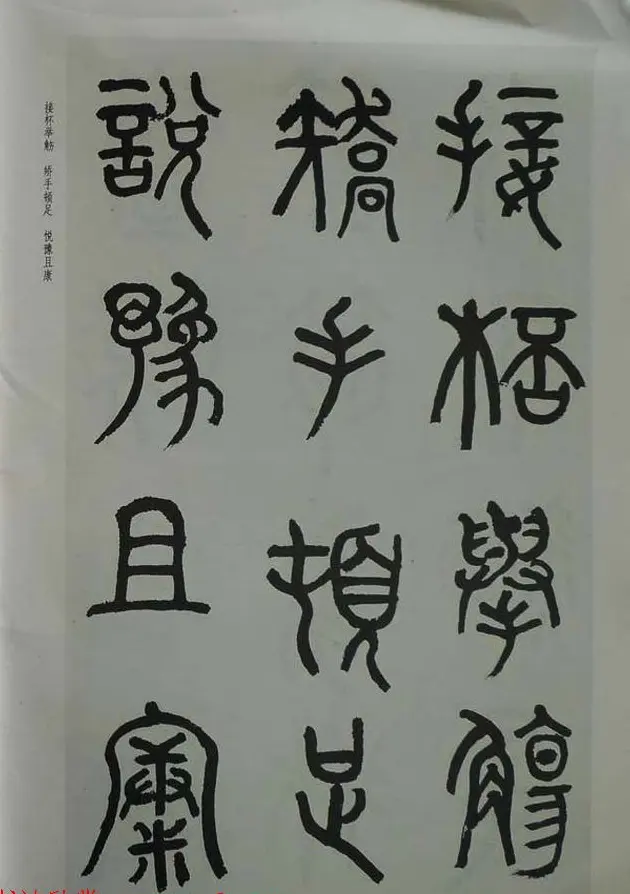 接桮舉觴
矯手頓足
說豫且康
接杯举觞　矫手顿足　悦豫且康